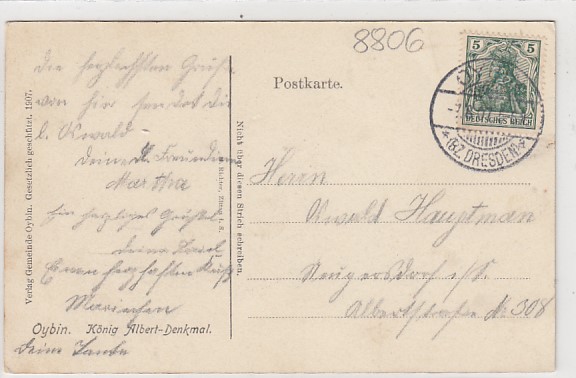 8806
Die herzlichsten Grüße
von hier sendet dir
l. Oswald
deine Freundin
Martha
Ein herzliches
deine
Einen herzhaften Kuß
Mariechen
deine Tante
Oybin. König Albert-Denkmal.
Verlag Gemeinde Oybin. Gesetzlich geschützt. 1907.
Richter, Zittau i. S.
Nicht über diesen Strich schreiben.
Postkarte.
5 5
DEUTSCHES REICH
* (BZ. DRESDEN) *
Herrn
Oswald Hauptman
Neugersdorf i/S.
Albertstraße No 308